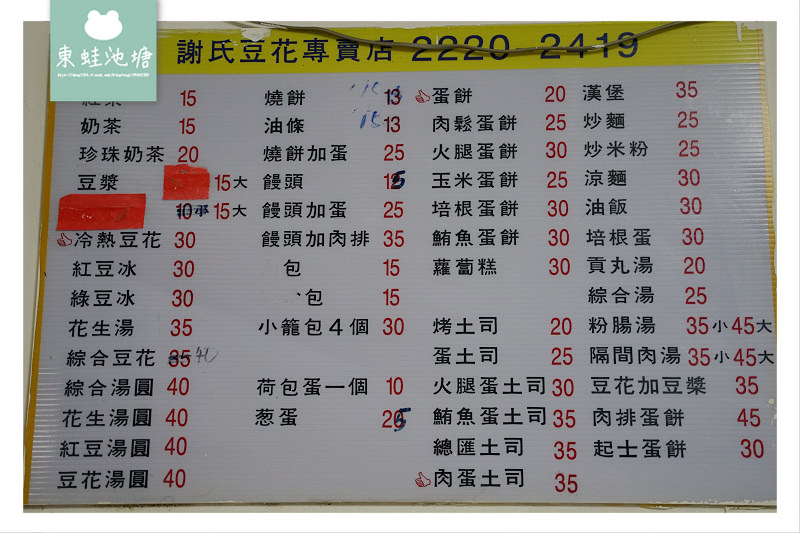 東蛙池塘
謝氏豆花專賣店 2220-2419
紅茶 15
奶茶 15
珍珠奶茶 20
豆漿 15大
10 15大
冷熱豆花 30
紅豆冰 30
綠豆冰 30
花生湯 35
綜合豆花 35 40
綜合湯圓 40
花生湯圓 40
紅豆湯圓 40
豆花湯圓 40
燒餅 13 15
油條 13 15
燒餅加蛋 25
饅頭 15
饅頭加蛋 25
饅頭加肉排 35
包 15
包 15
小籠包4個 30
荷包蛋一個 10
葱蛋 25
蛋餅 20
肉鬆蛋餅 25
火腿蛋餅 30
玉米蛋餅 25
培根蛋餅 30
鮪魚蛋餅 30
蘿蔔糕 30
烤土司 20
蛋土司 25
火腿蛋土司 30
鮪魚蛋土司 35
總匯土司 35
肉蛋土司 35
漢堡 35
炒麵 25
炒米粉 25
涼麵 30
油飯 30
培根蛋 30
貢丸湯 20
綜合湯 25
粉腸湯 35小45大
隔間肉湯 35小45大
豆花加豆漿 35
肉排蛋餅 45
起士蛋餅 30